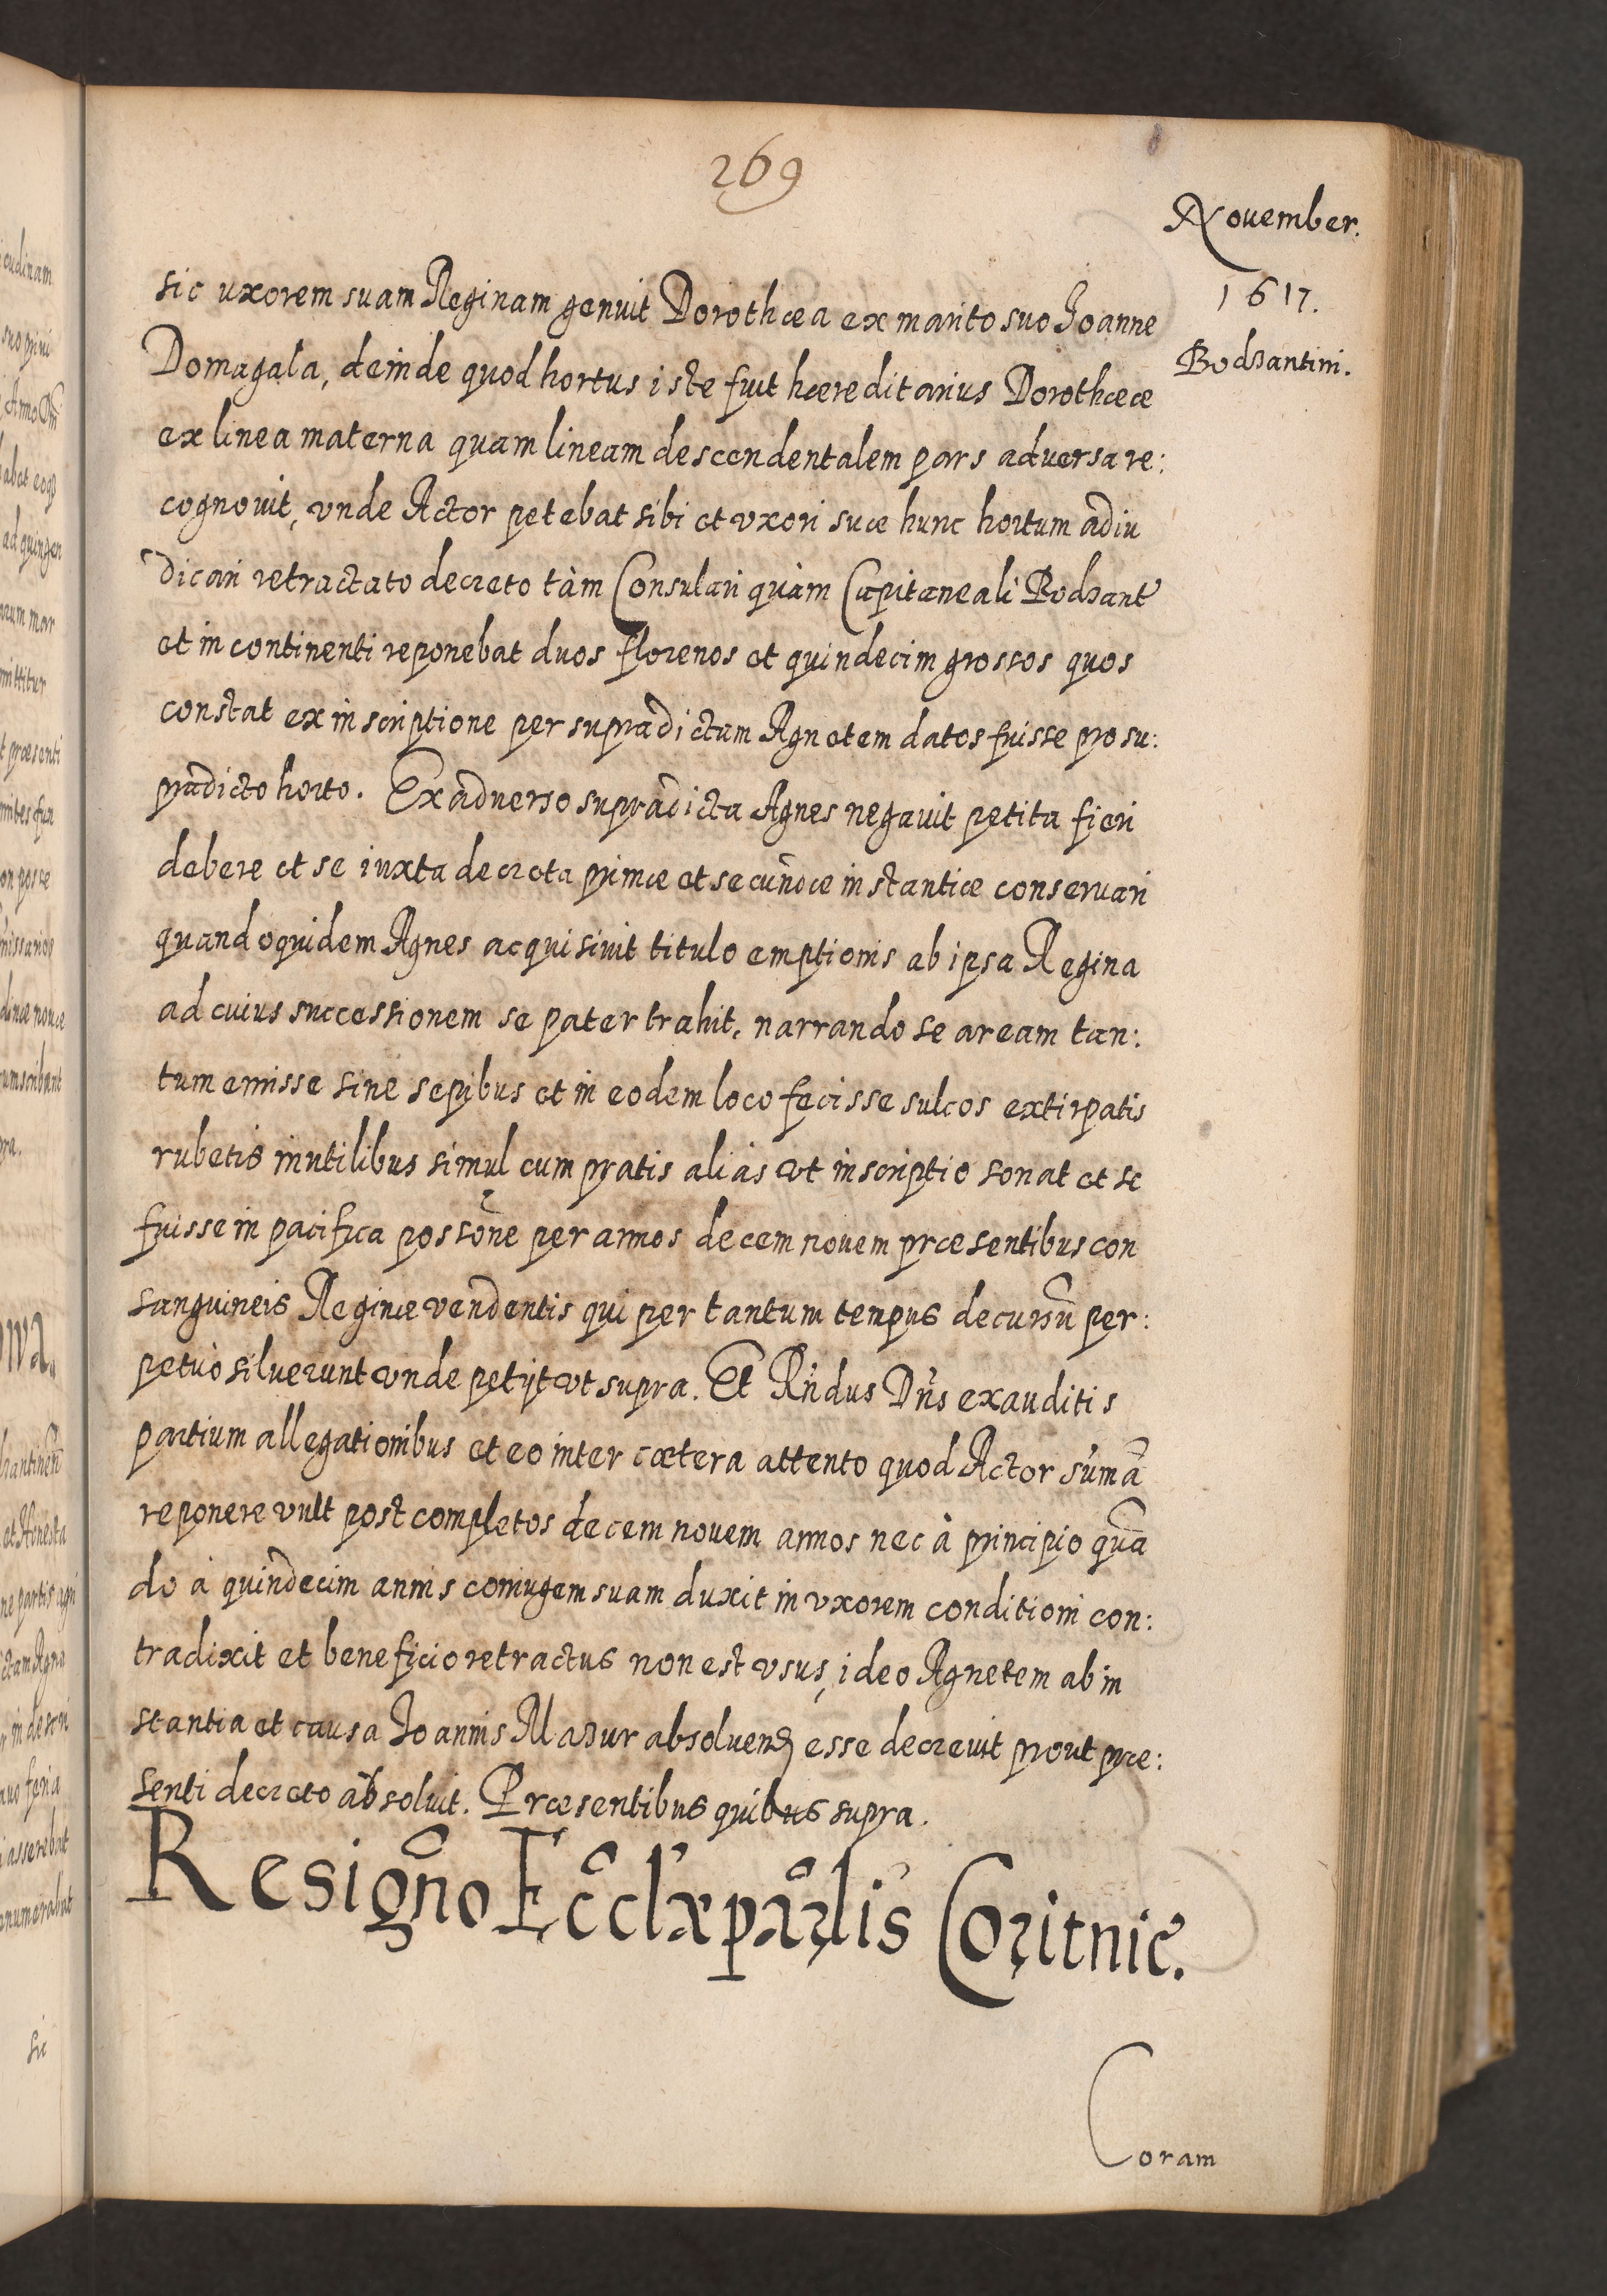 269
November.
1617.
Bodzantini.
sic uxorem suam Reginam genuit Dorothæa ex marito suo Joanne
Domagala, deinde quod hortus iste fuit hæreditarius Dorothææ
ex linea materna quam lineam descendentalem pars adversa re:
cognovit, vnde Actor petebat sibi et vxori suæ hunc hortum adiu
dicari retractato decreto tàm Consulari quàm Capitaneali Bodzant
et in continenti reponebat duos florenos et quindecim grossos quos
constat ex inscriptione per supradictam Agnetem datos fuisse pro su:
pradicto horto. Ex aduerso supradicta Agnes negavit petita fieri
debere et se iuxta decreta primæ et secundæ instantiæ conseruari
quandoquidem Agnes acquisivit titulo emptionis ab ipsa Regina
ad cuius successionem se pater trahit, narrando se aream tan:
tum emisse sine sepibus et in eodem loco fecisse sulcos extirpatis
rubetis inutilibus simul cum pratis alias vt inscriptio sonat et se
fuisse in pacifica possōne per annos decem novem præsentibus con
sanguineis Reginæ vendentis qui per tantum tempus decursū per:
petuò siluerunt vnde petijt vt supra. Et Rndus Dns exauditis
partium allegationibus et eo inter cætera attento quod Actor sumā
reponere vult post completos decem novem annos nec à principio quā
do à quindecim annis coniugem suam duxit in vxorem conditioni con:
tradixit et beneficio retractus non est vsus, ideo Agnetem ab in
stantia et causa Joannis Mazur absoluend esse decrevit prout præ:
senti decreto absoluit. Præsentibus quibus supra.
Resigno Eccłæ parlis Coritnic.
Coram
sic